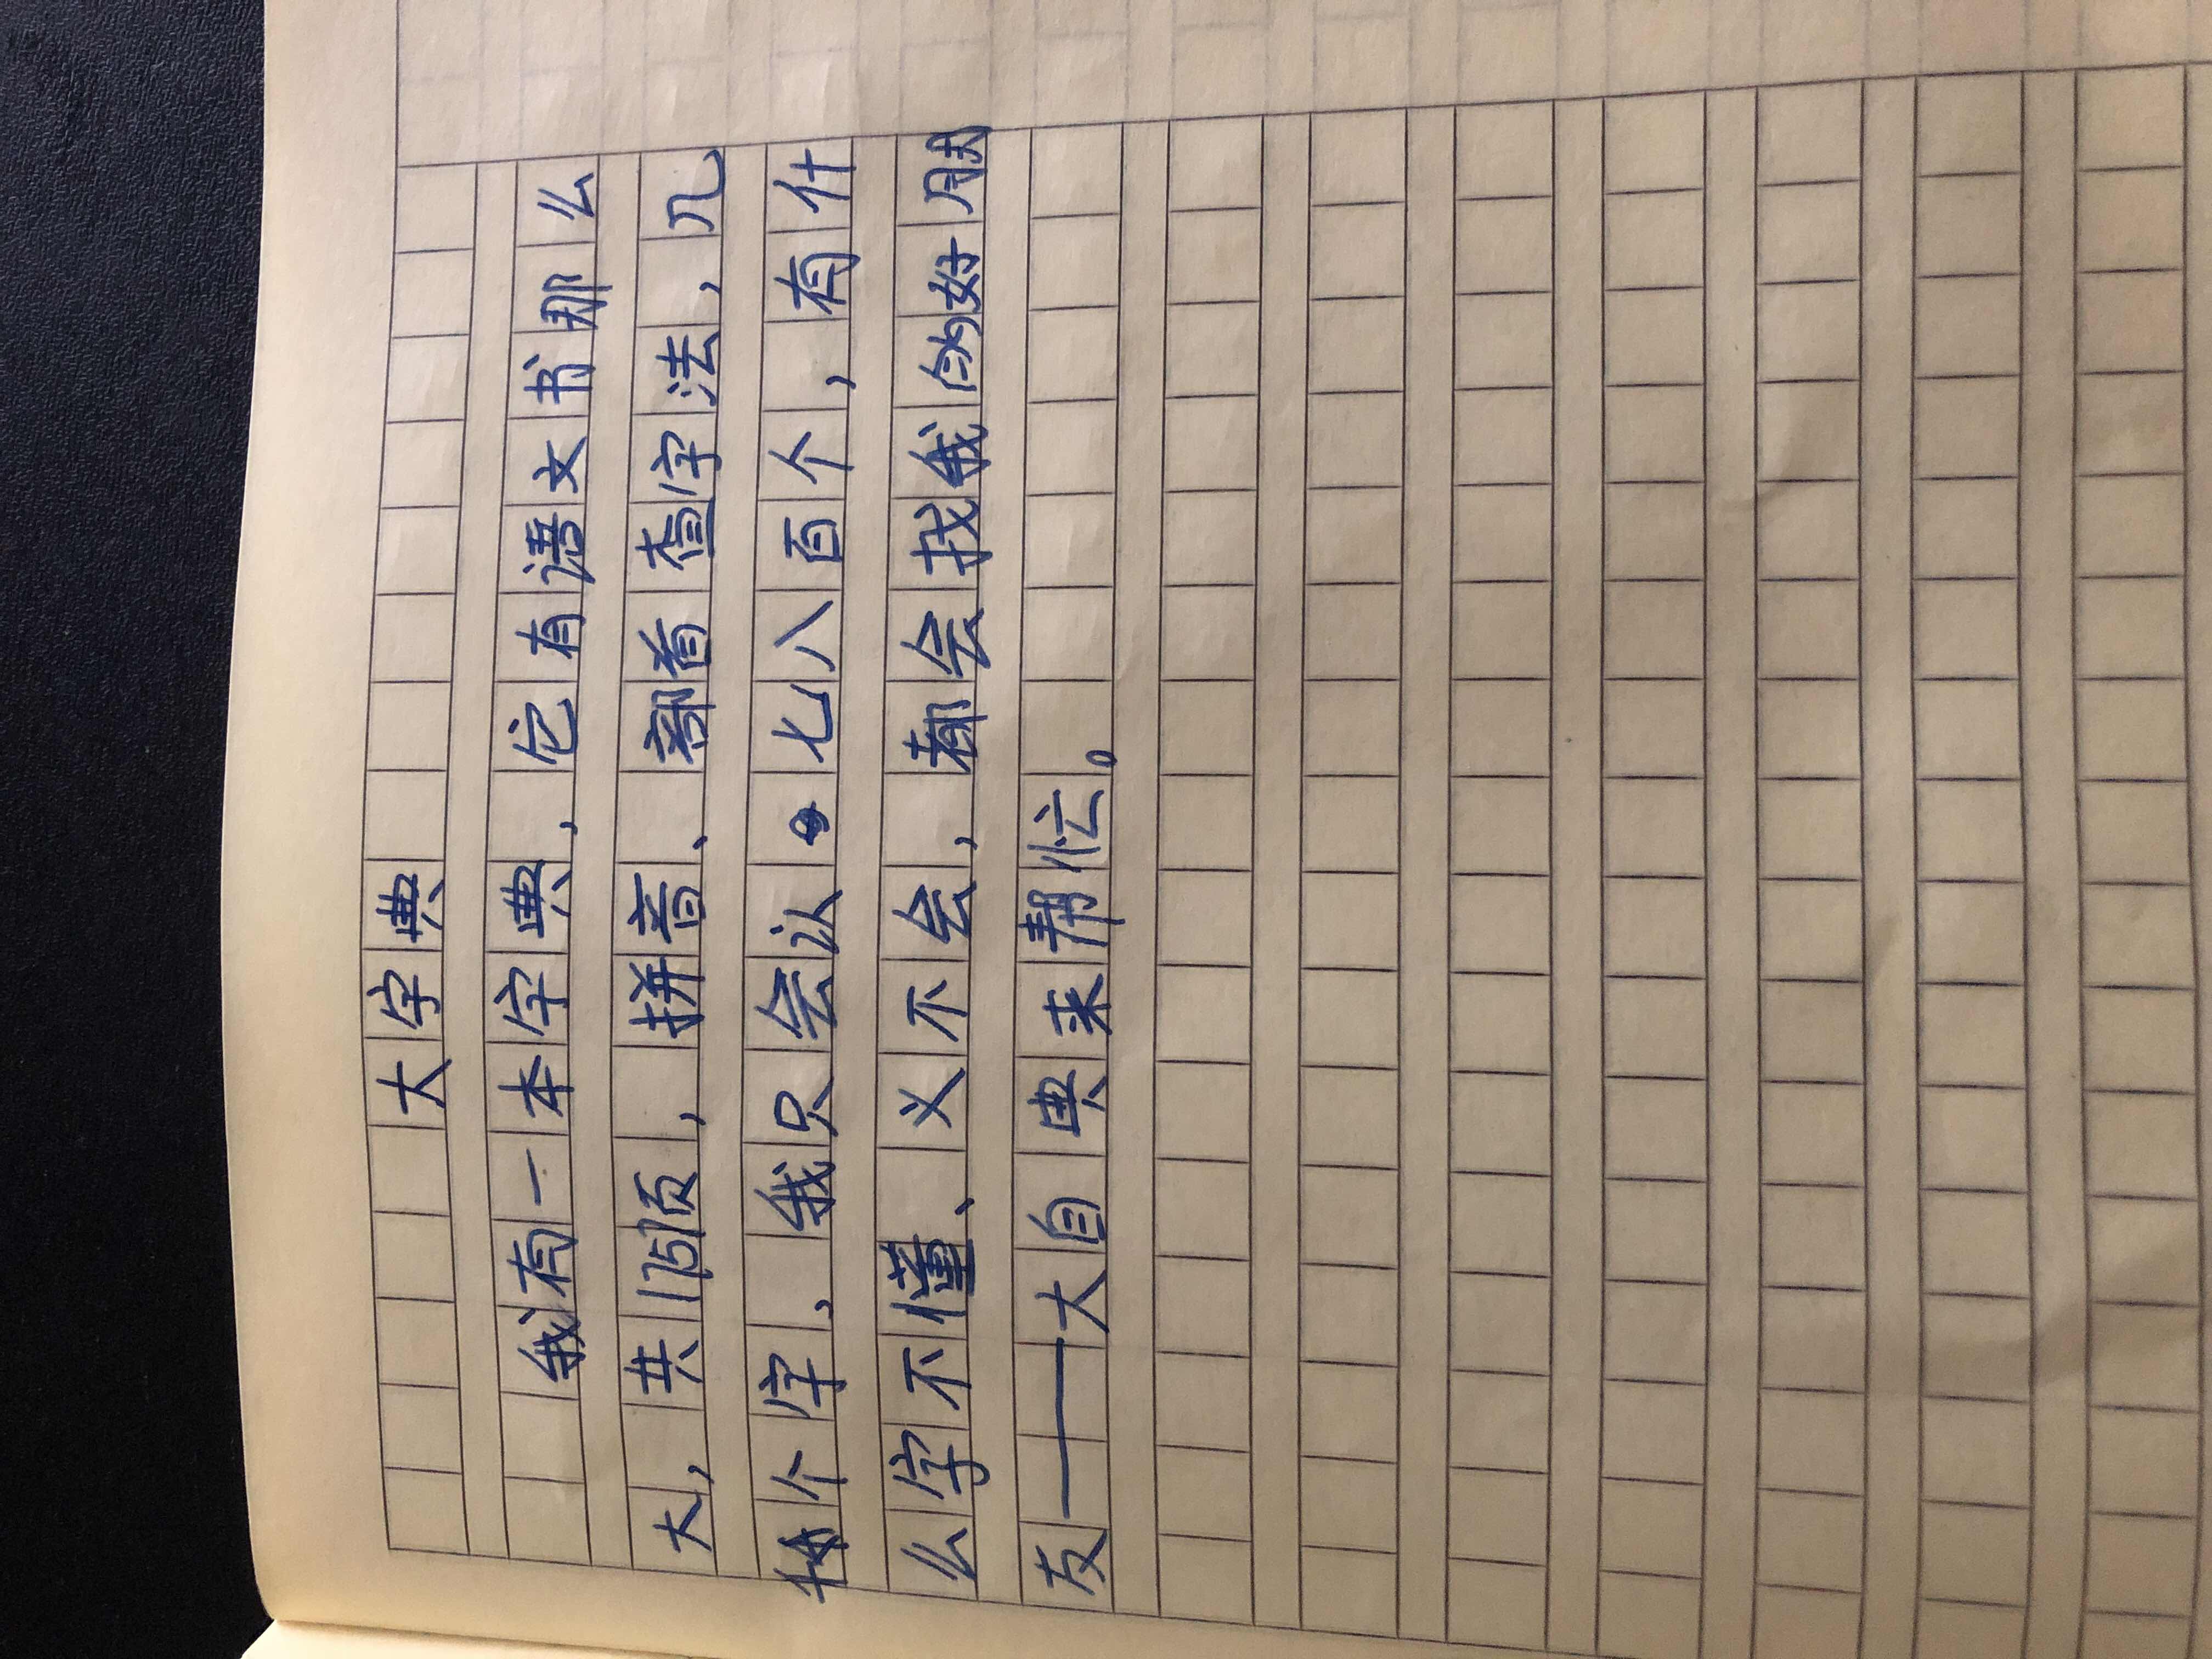 大字典
我有一本字典，它有语文书那么
大，共175页，拼音、部首查字法，几
个字，我只会认七八百个，有什
么字不懂、义不会，都会找我的好朋
友——大自典来帮忙。